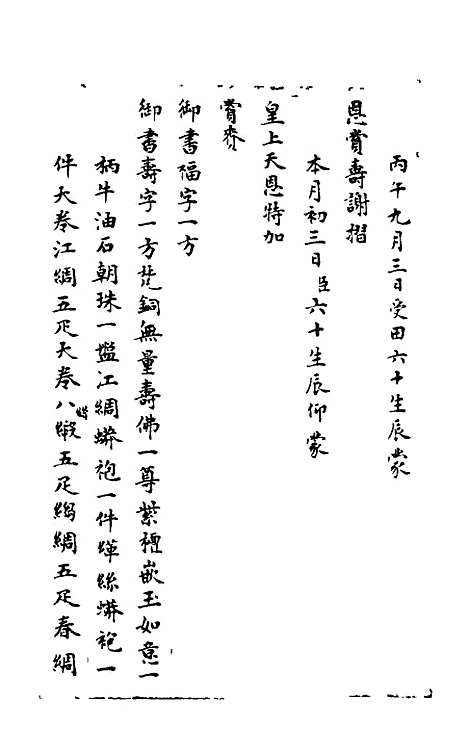 丙午九月三日受田六十生辰蒙
恩賞壽謝摺
本月初三日臣六十生辰仰蒙
皇上天恩特加
賞賚
御書福字一方
御書壽字一方梵銅無量壽佛一尊紫檀嵌玉如意一
柄牛油石朝珠一盤江綢蟒袍一件緙絲蟒袍一
件大卷江綢五疋大卷八絲緞五疋綢五疋春綢